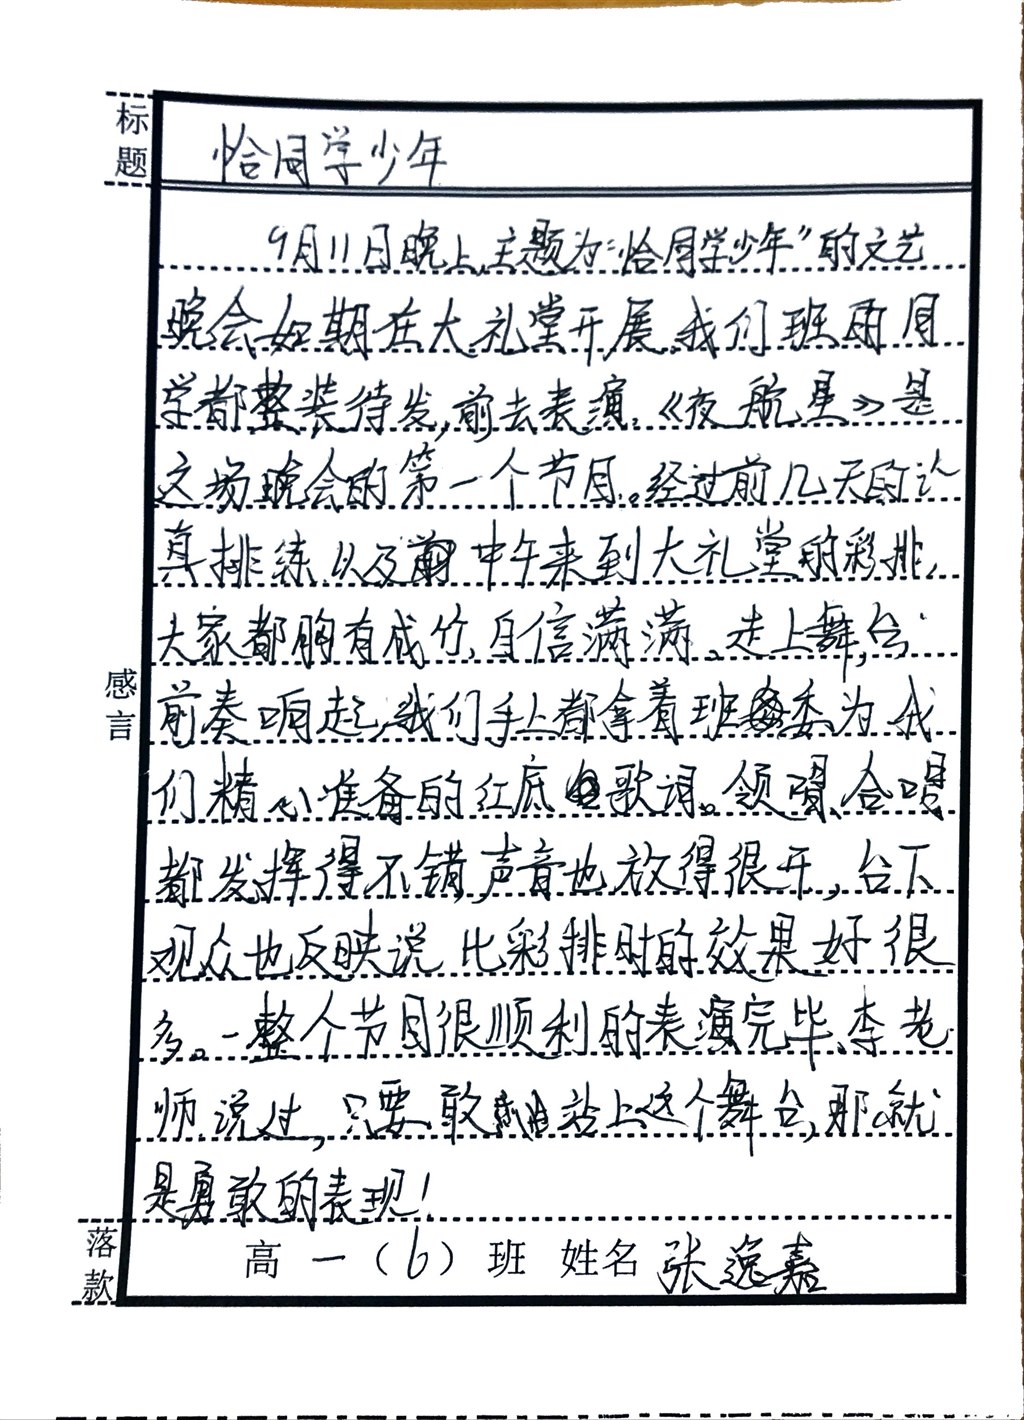 标题
恰同学少年
9月11日晚上,主题为“恰同学少年”的文艺
晚会如期在大礼堂开展,我们班同
学都整装待发,前去表演。《夜航星》是
这场晚会的第一个节目。经过前几天的认
真排练以及中午来到大礼堂的彩排,
大家都胸有成竹,自信满满。走上舞台,
前奏响起,我们手上都拿着班委为我
们精心准备的红底歌词。领唱、合唱
都发挥得不错,声音也放得很开,台下
观众也反映说比彩排时的效果好很
多。一整个节目很顺利的表演完毕,李老
师说过,只要敢站上这个舞台,那就
是勇敢的表现!
感言
落款
高一(6)班 姓名 张逸嘉